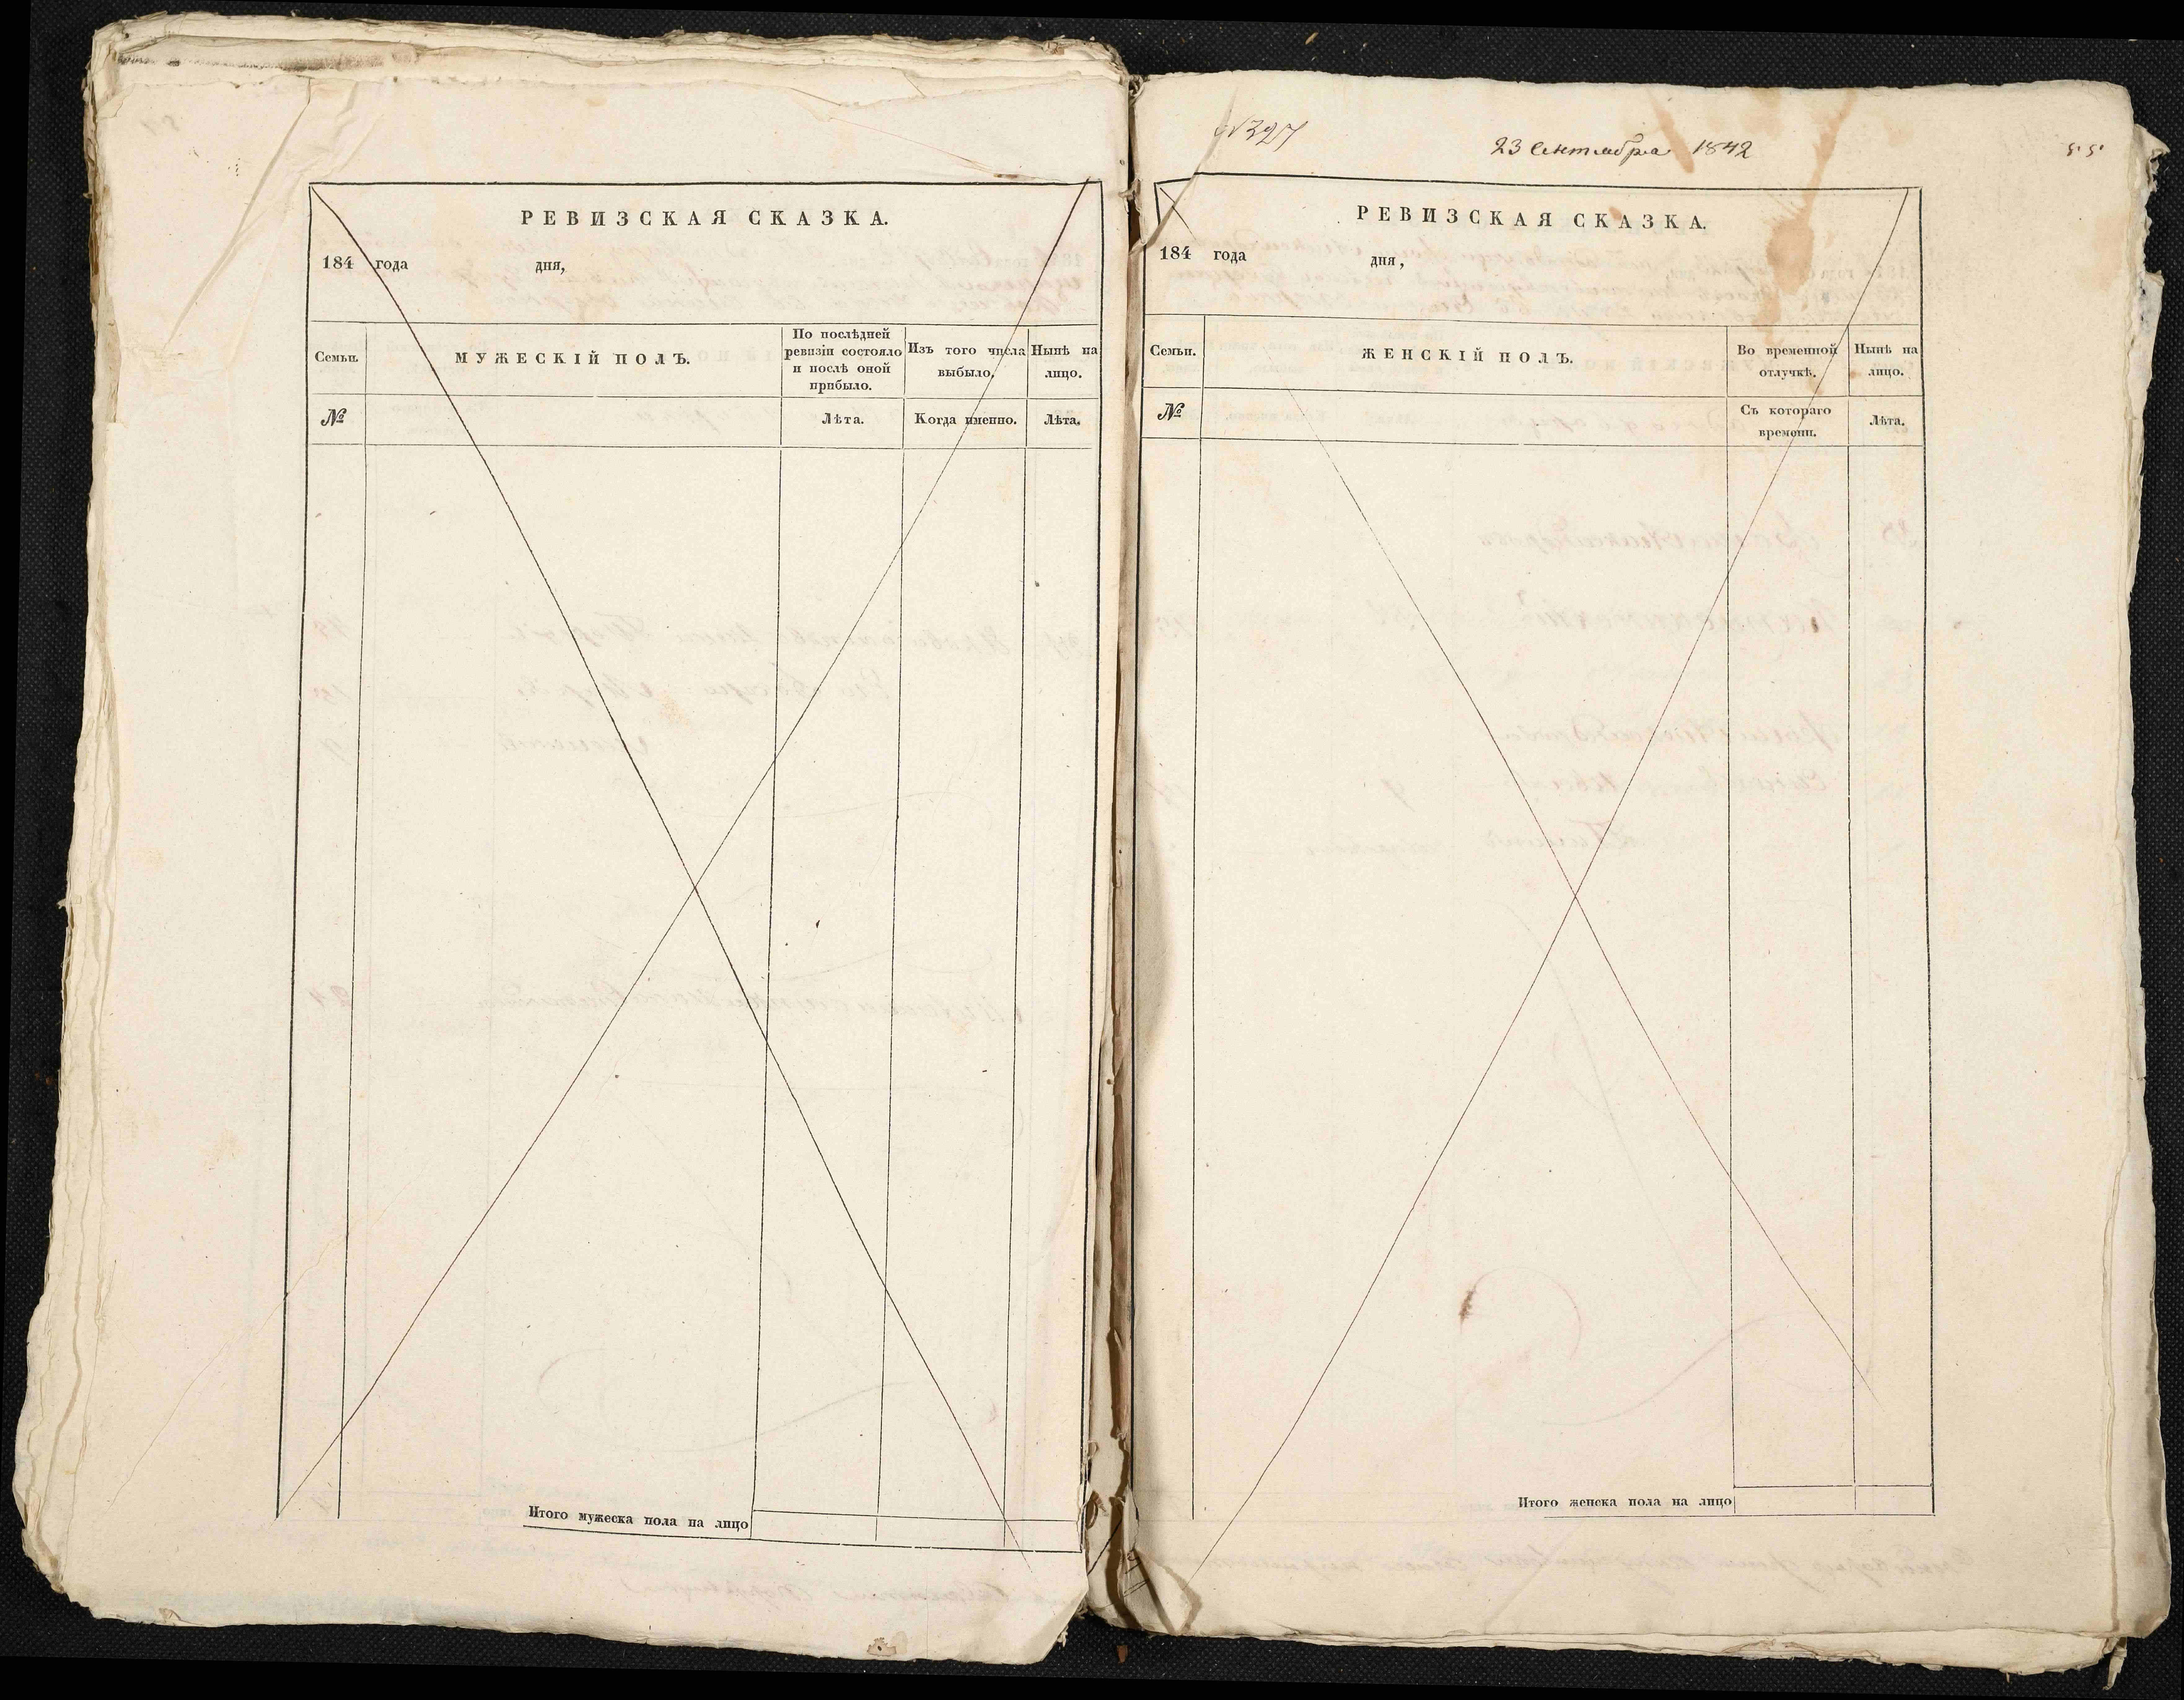 РЕВИЗСКАЯ СКАЗКА.
184 года дня,
Семьи. МУЖЕСКІЙ ПОЛЪ. По послѣдней ревизіи состояло и послѣ оной прибыло. Изъ того числа выбыло. Нынѣ на лицо.
№ Лѣта. Когда именно. Лѣта.
Итого мужеска пола на лицо
№327
23 Сентября 1842
55
РЕВИЗСКАЯ СКАЗКА.
184 года дня,
Семьи. ЖЕНСКІЙ ПОЛЪ. Во временной отлучкѣ. Нынѣ на лицо.
№ Съ котораго времени. Лѣта.
Итого женска пола на лицо